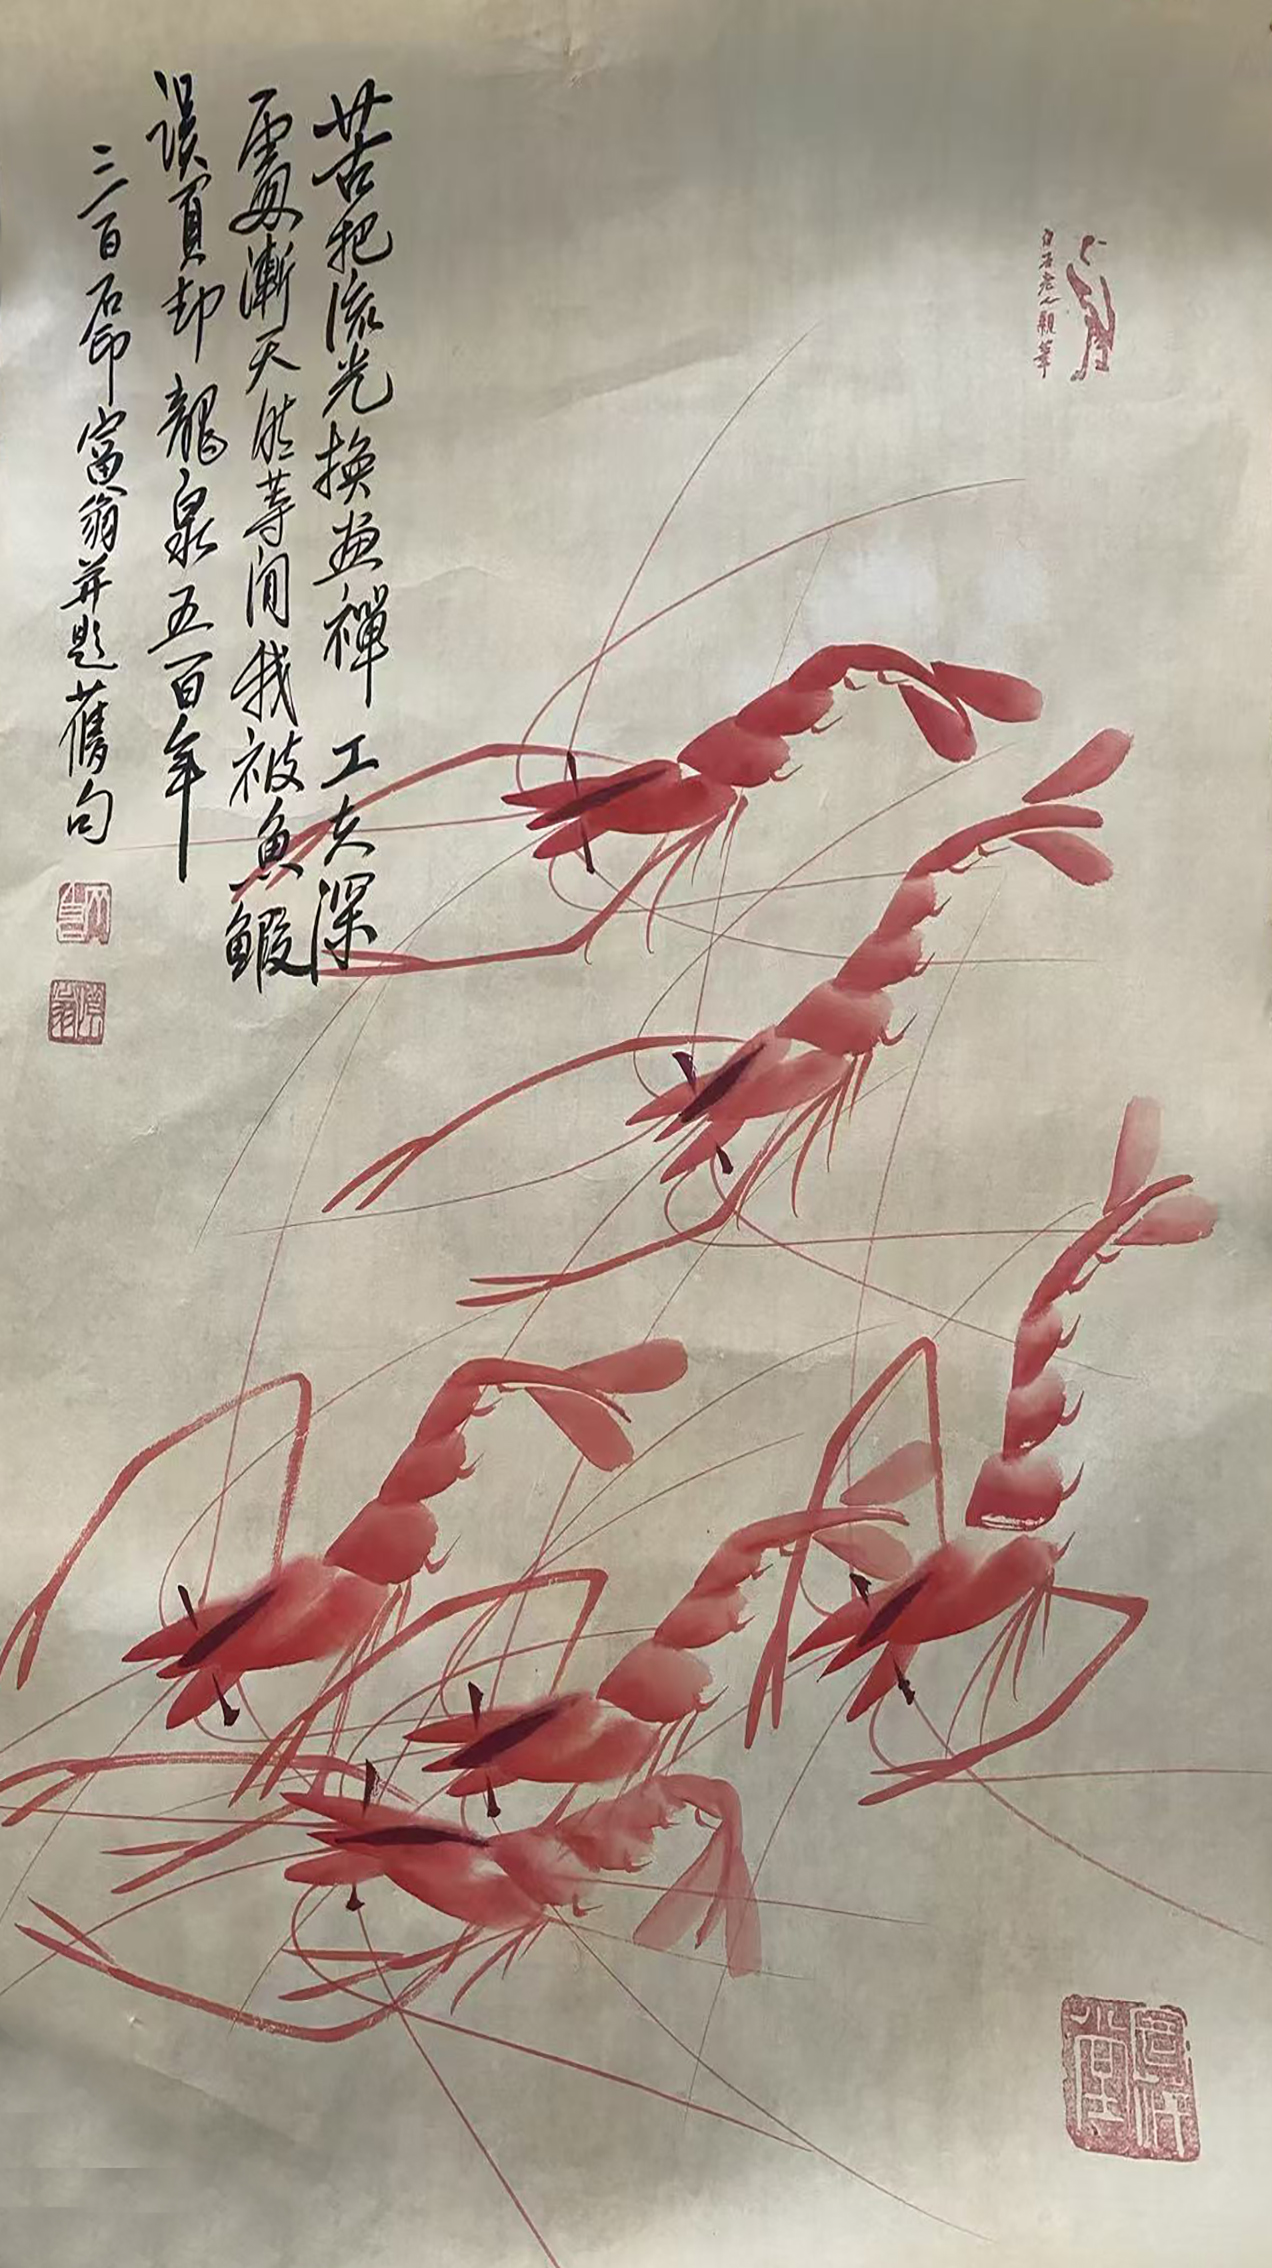 苦把流光換畫禪工夫深
處漸天然等閒我被魚鰕
誤負却龍泉五百年
三百石印富翁并題舊句
白石老人親筆